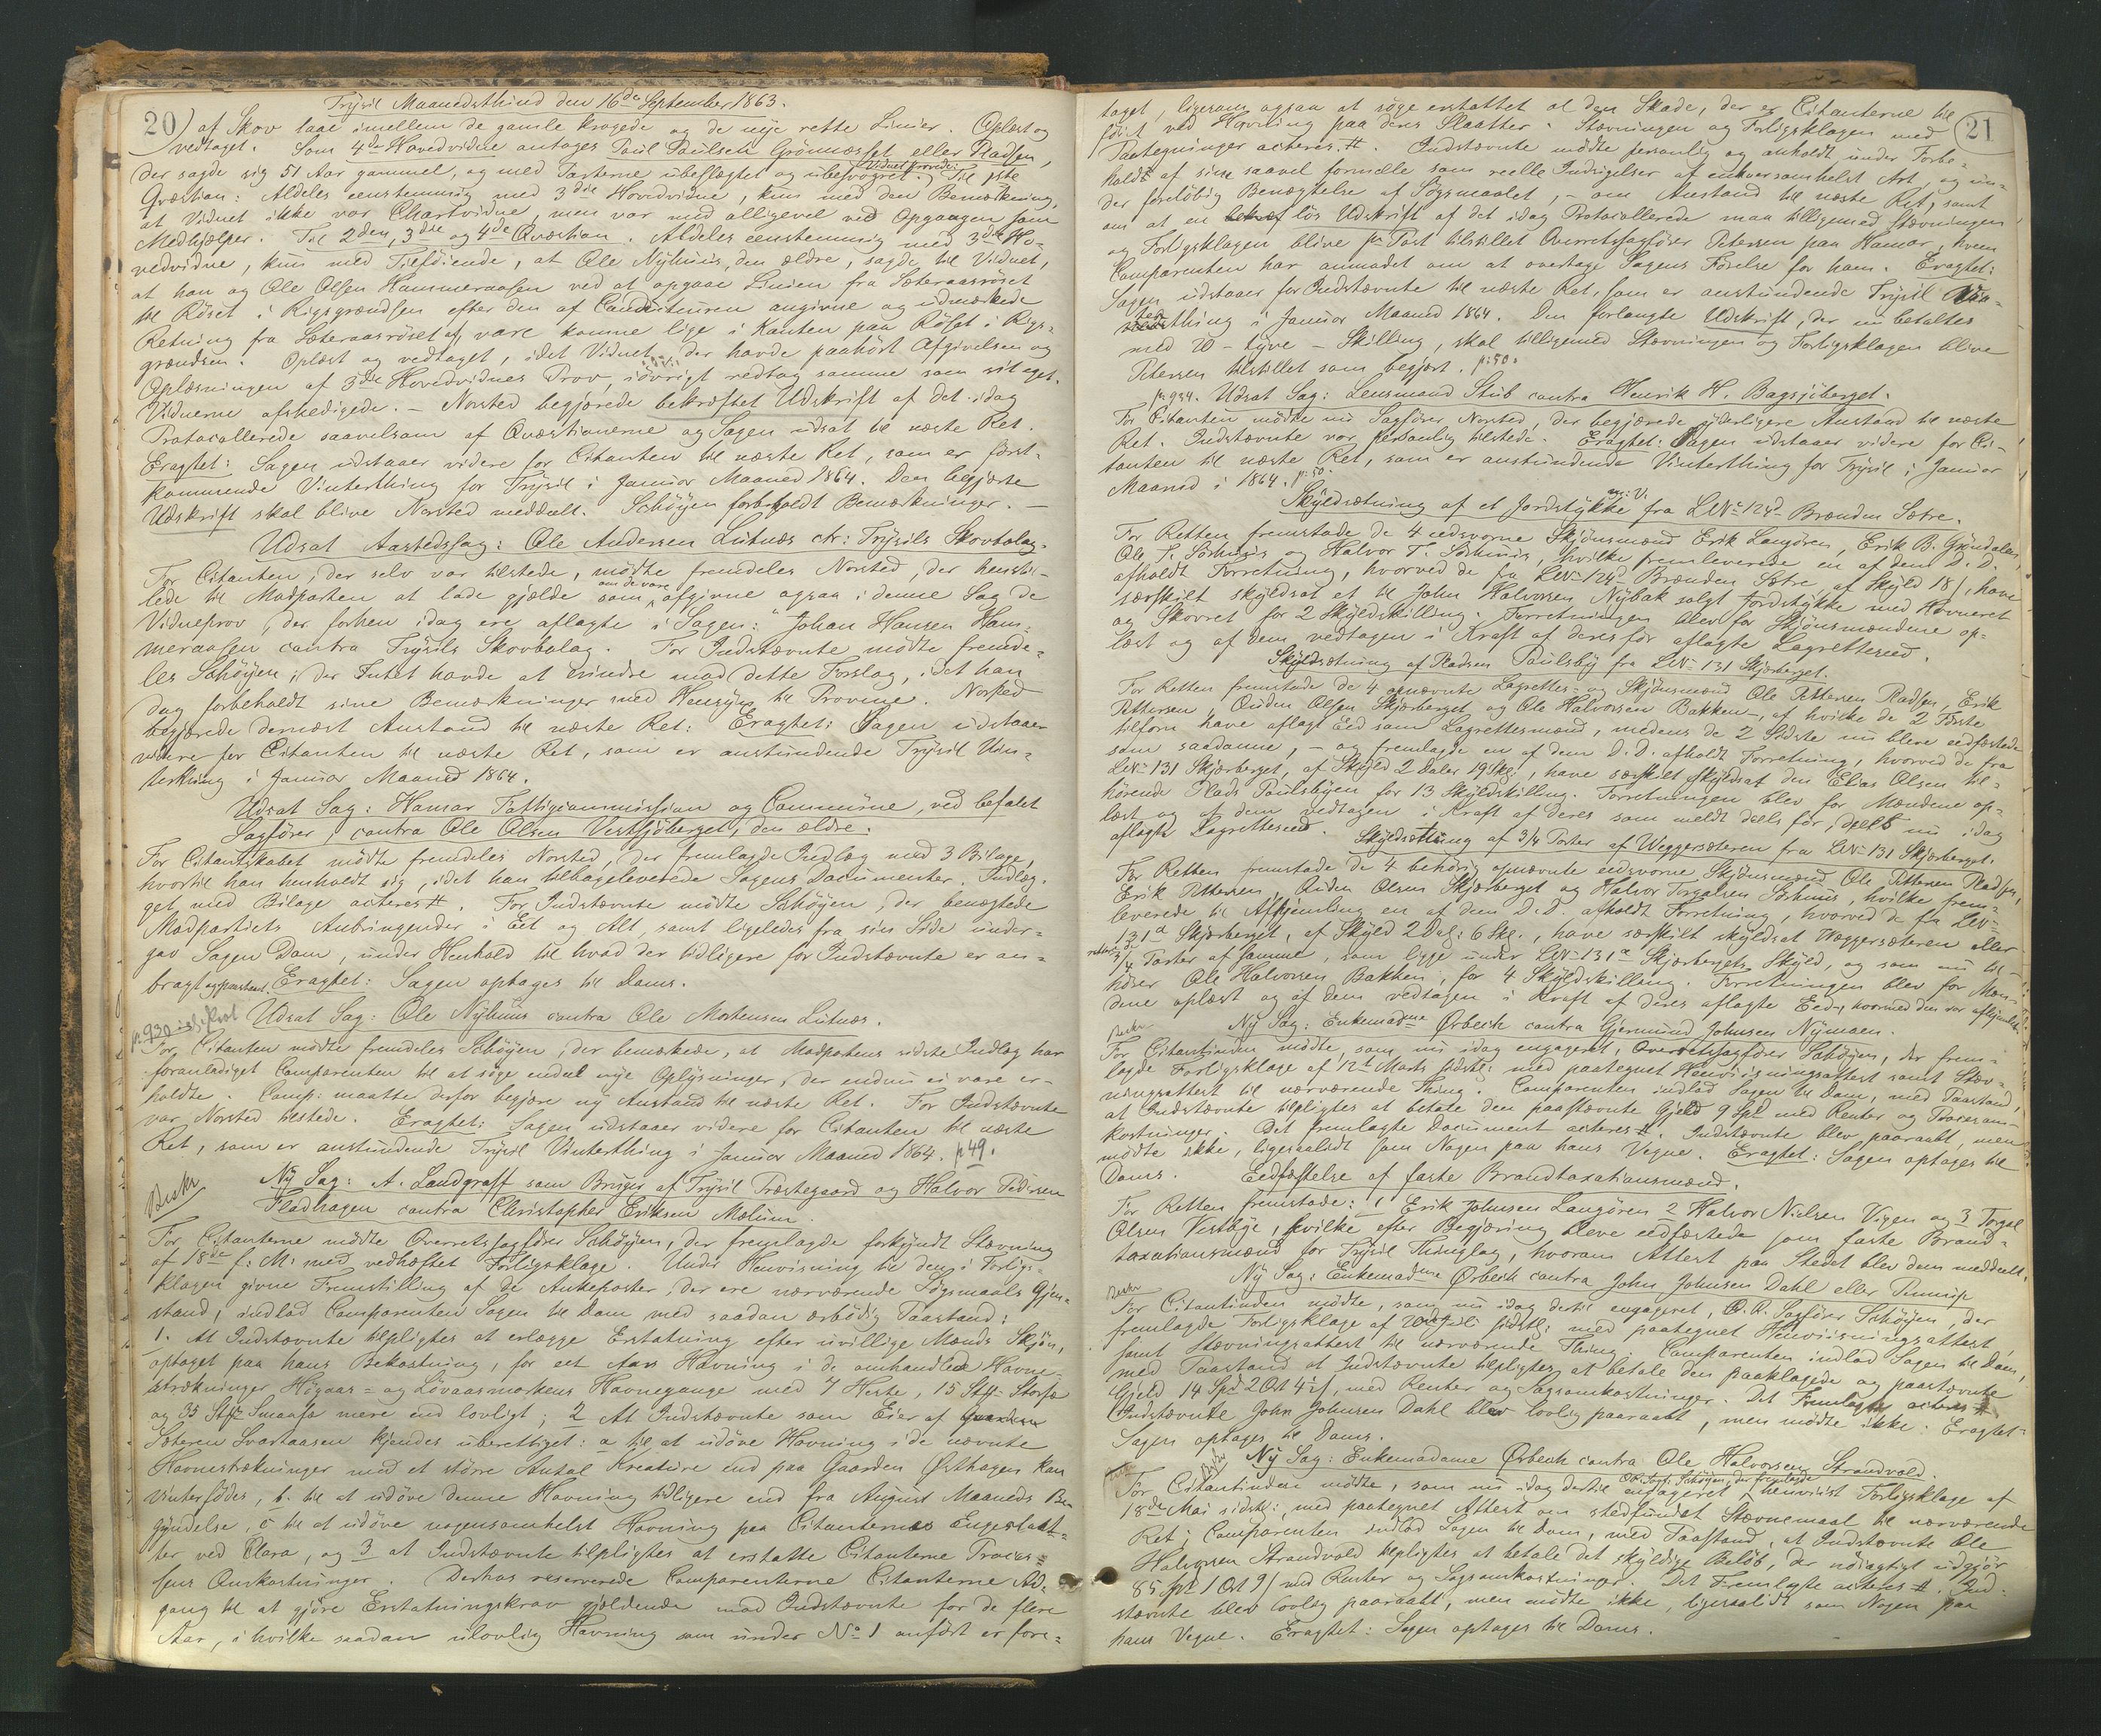 20
Trysil Maanedsthing den 16de September 1863.
af Skov laae imellem de gamle krogede og de nye rette Linier. Oplæst og
vedtaget. Som 4de Hovedvidne antages Paul Paulsen Grönnæsset eller Pladsen,
der sagde sig 51 Aar gammel, og med Parterne ubeslægtet og ubesvogret. Til 1ste
Qvæstion: Aldeles eenstemmig med 3die Hovedvidne, kun med den Bemærkning,
at Vidnet ikke var Chartvidne, men var med alligevel ved Opgangen som
Medhjælper. Til 2den, 3die og 4de Qvæstion. Aldeles eenstemmig med 3die Ho-
vedvidne, kun med Tilföiende, at Ole Nyhuus, den ældre, sagde til Vidnet,
at han og Ole Olsen Hammeraasen ved at opgaae Linien fra Sæteraasröset
til Röset i Rigsgrændsen efter den af Conducteuren angivne og udmærkede
Retning fra Sæteraasröset af, vare komne lige i Kanten paa Röset i Rigs-
grændsen. Oplæst og vedtaget, idet Vidnet, der havde paahört Afgivelsen og
Oplæsningen af 3die Hovedvidnes Prov, iövrigt vedtog samme som sit eget.
Vidnerne afskedigede. – Norsted begjærede bekræftet Udskrift af det idag
Protocollerede saavelsom af Qvæstionerne og Sagen udsat til næste Ret.
Eragtet: Sagen udstaaer videre for Citanten til næste Ret, som er först-
kommende Vinterthing for Trysil i Januar Maaned 1864. Den begjærte
Udskrift skal blive Norsted meddeelt. Schöyen forbeholdt Bemærkninger. –
Udsat Aastedssag: Ole Andersen Lutnæs ctr: Trysils Skovbolag.
For Citanten, der selv var tilstede, mödte fremdeles Norsted, der henstil-
lede til Modparten at lade gjælde som om de vare afgivne ogsaa i denne Sag de
Vidneprov, der forhen idag ere aflagte i Sagen: "Johan Hansen Ham-
meraasen contra Trysils Skovbolag. For Indstævnte mödte fremde-
les Schöyen, der Intet havde at erindre mod dette Forslag, idet han
dog forbeholdt sine Bemærkninger med Hensyn til Provene. Norsted
begjærede dernæst Anstand til næste Ret: Eragtet: Sagen udstaaer
videre for Citanten til næste Ret, som er anstundende Trysil Vin-
terthing i Januar Maaned 1864.
Udsat Sag: Hamar Fattigcommission og Commune, ved befalet
Sagförer, contra Ole Olsen Vestsjöberget, den ældre.
For Citantskabet mödte fremdeles Norsted, der fremlagde Indlæg med 3 Bilage,
hvortil han henholdt sig, idet han tilbageleverede Sagens Documenter. Indlæg-
get med Bilage acteres #. For Indstævnte mödte Schöyen, der benægtede
Modpartiets Anbringender i Eet og Alt, samt ligeledes fra sin Side under-
gav Sagen Dom, under Henhold til hvad der tidligere for Indstævnte er an-
bragt og paastaaet. Eragtet: Sagen optages til Doms.
Udsat Sag: Ole Nyhuus contra Ole Mortensen Lutnæs.
For Citanten mödte fremdeles Schöyen, der bemærkede, at Modpartens sidste Indlæg har
foranlediget Comparenten til at söge endeel nye Oplysninger, der endnu ei vare er-
holdte. Comp: maatte derfor begjære ny Anstand til næste Ret. For Indstævnte
var Norsted tilstede. Eragtet: Sagen udstaaer videre for Citanten til næste
Ret, som er anstundende Trysil Vinterthing i Januar Maaned 1864. p 49.
Beskr
Ny Sag: A. Landgraff som Bruger af Trysil Præstegaard og Halvor Pedersen
Fladhagen contra Christopher Eriksen Mælum.
For Citanterne mödte Overretssagförer Schöyen, der fremlagde forkyndt Stævning
af 18de f: M: med vedhæftet Forligsklage. Under Henvisning til den i Forligs-
klagen givne Fremstilling af de Ankeposter, der ere nærværende Sögsmaals Gjen-
stand, indlod Comparenten Sagen til Dom med saadan ærbödig Paastand:
1. At Indstævnte tilpligtes at erlægge Erstatning efter uvillige Mænds Skjön,
optaget paa hans Bekostning, for eet Aars Havning i de omhandlede Havne-
strækninger Högaas- og Lövaasmarkens Havnegange med 7 Heste, 15 Stkr Storfæ
og 35 Stkr Smaafæ mere end lovligt; 2 At Indstævnte som Eier af
Sæteren Svartaasen kjendes uberettiget: a til at udöve Havning i de nævnte
Havnestrækninger med et större Antal Kreature end paa Gaarden Östhagen kan
vinterfödes, b. til at udöve denne Havning tidligere end fra August Maaneds Be-
gyndelse, c til at udöve nogensomhelst Havning paa Citanternes Engeslaat-
ter ved Elara, og 3 at Indstævnte tilpligtes at erstatte Citanterne Proces-
sens Omkostninger. Derhos reserverede Comparenterne Citanterne Ad-
gang til at gjöre Erstatningskrav gjældende mod Indstævnte for de flere
Aar, i hvilke saadan ulovlig Havning som under No 1 anfört er fore-
21
taget, ligesom ogsaa at söge erstattet al den Skade, der er Citanterne til
föiet ved Havning paa deres Slaatter. Stævningen og Forligsklagen med
Paategninger acteres. #. Indstævnte mödte personlig og anholdt under Forbe-
hold af sine saavel formelle som reelle Indsigelser af enhversomhelst Art, og un-
der foreløbig Benægtelse af Sögsmaalet, – om Anstand til næste Ret, samt
om at en lös Udskrift af det idag Protocollerede maa tilligemed Stævningen
og Forligsklagen blive pr Post tilstillet Overretssagförer Petersen paa Hamar, hvem
Comparenten har anmodet om at overtage Sagens Förelse for ham. Eragtet:
Sagen udstaaer for Indstævnte til næste Ret, som er anstundende Trysil Vin-
terthing i Januar Maaned 1864. Den forlangte Udskrift, der nu betaltes
med 20 – tyve – Skilling, skal tilligemed Stævningen og Forligsklagen blive
Petersen tilstillet som begjært. p: 50.
p: 934. Udsat Sag: Lensmand Stub contra Henrik H. Bagsjöberget.
For Citanten mödte nu Sagförer Norsted, der begjærede yderligere Anstand til næste
Ret. Indstævnte var personlig tilstede. Eragtet: Sagen udstaaer videre for Ci-
tanten til næste Ret, som er anstundende Vinterthing for Trysil i Januar
Maaned i 1864. p: 50.
Skyldsætning af et Jordstykke m: V. fra LNo 124d Brænden Sætre.
For Retten fremstode de 4 eedsvorne Skjönsmænd Erik Langören, Erik B. Gröndalen,
Ole P. Sörhuus og Halvor T. Sörhuus, hvilke fremleverede en af dem D. D.
afholdt Forretning, hvorved de fra LNo 124d Brænden Sætre af Skyld 18 ß, have
særskilt skyldsat et til John Halvorsen Nybak solgt Jordstykke med Havneret
og Skovret for 2 Skyldskilling. Forretningen blev for Skjönsmændene op-
læst og af dem vedtagen i Kraft af deres för aflagte Lagretteseed.
Skyldsætning af Pladsen Paulsby fra LNo 131 Skjærberget.
For Retten fremstode de 4 opnævnte Lagrettes- og Skjönsmænd Ole Pettersen Pladsen, Erik
Pettersen, Ouden Olsen Skjærberget og Ole Halvorsen Bakken –, af hvilke de 2 Förste
tilforn have aflagt Eed som Lagrettesmænd, medens de 2 Sidste nu bleve eedfæstede
som saadanne, – og fremlagde en af dem D. D. afholdt Forretning, hvorved de fra
LNo 131 Skjærberget, af Skyld 2 Daler 19 Skg., have særskilt skyldsat den Elias Olsen til-
hörende Plads Paulsbyen for 13 Skyldskilling. Forretningen blev for Mændene op-
læst og af dem vedtagen i Kraft af deres som meldt deels för, deels nu idag
aflagte Lagretteseed.
Skyldsætning af 3/4 Parter af Weggersæteren fra LNo 131 Skjærberget.
For Retten fremstode de 4 behörig opnævnte eedsvorne Skjönsmænd Ole Pettersen Pladsen,
Erik Pettersen, Ouden Olsen Skjærberget og Halvor Torgalsen Sörhuus, hvilke frem-
leverede til Afhjemling en af dem D. D. afholdt Forretning, hvorved de fra LNo
131a Skjærberget, af Skyld 2 Dal: 6 Skg., have særskilt skyldsat Weggersæteren eller
rettere de 3/4 Parter af samme, som ligge under LNo 131a Skjærbergets Skyld, og som nu til-
hörer Ole Halvorsen Bakken, for 4 Skyldskilling. Forretningen blev for Mæn-
dene oplæst og af dem vedtagen i Kraft af deres aflagte Eed, hvormed den var afhjemlet.
Beskr Ny Sag: Enkemadme Ørbech contra Gjermund Johnsen Nymoen.
For Citantinden mödte, som nu idag engageret, Overretssagförer Schöyen, der frem-
lagde Forligsklage af 12te Marts sidstl: med paategnet Henviisningsattest samt Stæv-
ningsattest til nærværende Thing. Comparenten indlod Sagen til Dom, med Paastand,
at Indstævnte tilpligtes at betale den paastævnte Gjeld 9 Spd med Renter og Procesom-
kostninger. Det fremlagte Document acteres #. Indstævnte blev paaraabt, men
mödte ikke, ligesaalidt som Nogen paa hans Vegne. Eragtet: Sagen optages til
Doms.
Eedfæstelse af faste Brandtaxationsmænd.
For Retten fremstode: 1 Erik Johnsen Langören 2 Halvor Nielsen Vigen og 3 Torgal
Olsen Vestbye, hvilke efter Begjæring bleve eedfæstede som faste Brand-
taxationsmænd for Trysil Thinglag, hvorom Attest paa Stedet blev dem meddeelt.
Beskr Ny Sag: Enkemadme Ørbech contra John Johnsen Dahl eller
For Citantinden mödte, som nu idag dertil engageret, O. R. Sagförer Schöyen, der
fremlagde Forligsklage af sidstl: med paategnet Henviisningsattest
samt Stævningsattest til nærværende Thing. Comparenten indlod Sagen til Dom,
med Paastand at Indstævnte tilpligtes at betale den paaklagede og paastævnte
Gjeld 14 Spd 2 Ort 4½ ß, med Renter og Sagsomkostninger. Det Fremlagte acteres #
Indstævnte John Johnsen Dahl blev lovlig paaraabt, men mödte ikke. Eragtet:
Sagen optages til Doms.
Ny Sag: Enkemadame Ørbech contra Ole Halvorsen Strandvold.
For Citantinden mödte, som nu idag dertil engageret, OR. Sagf. Schöyen, der fremlagde henviist Forligsklage af
18de Mai sidstl: med paategnet Attest om stedfundet Stævnemaal til nærværende
Ret; Comparenten indlod Sagen til Dom, med Paastand, at Indstævnte Ole
Halvorsen Strandvold tilpligtes at betale det skyldige Belöb, der nöiagtigt udgjör
85 Spd 1 Ort 9 ß med Renter og Sagsomkostninger. Det Fremlagte acteres #. Ind-
stævnte blev lovlig paaraabt, men mödte ikke, ligesaalidt som Nogen paa
hans Vegne. Eragtet: Sagen optages til Doms.